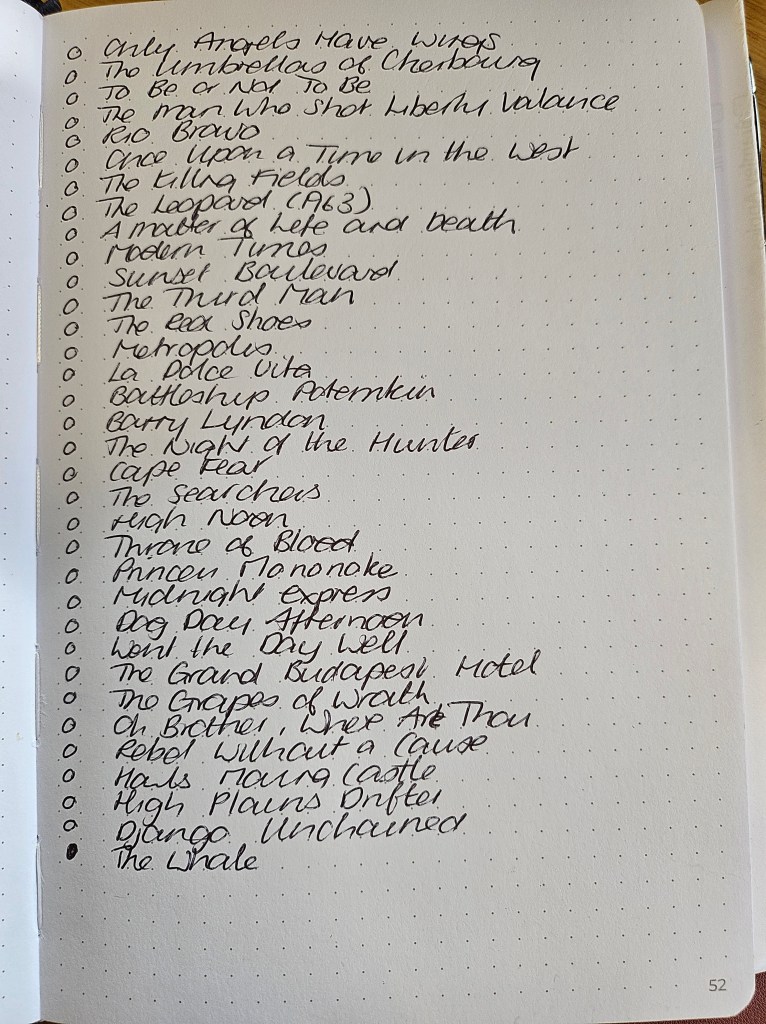 Only Angels Have Wings
The Umbrellas of Cherbourg
To Be or Not To Be
The Man Who Shot Liberty Valance
Rio Bravo
Once Upon a Time in the West
The Killing Fields
The Leopard (1963)
A Matter of Life and Death
Modern Times
Sunset Boulevard
The Third Man
The Red Shoes
Metropolis
La Dolce Vita
Battleship Potemkin
Barry Lyndon
The Night of the Hunter
Cape Fear
The Searchers
High Noon
Throne of Blood
Princess Mononoke
Midnight Express
Dog Day Afternoon
Went the Day Well
The Grand Budapest Hotel
The Grapes of Wrath
Oh Brother, Where Art Thou
Rebel Without a Cause
Howls Moving Castle
High Plains Drifter
Django Unchained
The Whale
52